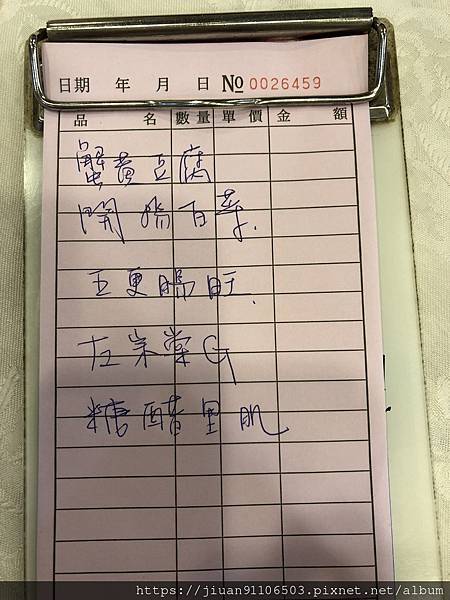 日期 年 月 日 No 0026459
品 名 數量 單價 金 額
蟹黃豆腐
開陽白菜.
五更腸旺.
左宗棠G
糖醋里肌
https://jiuan91106503.pixnet.net/album